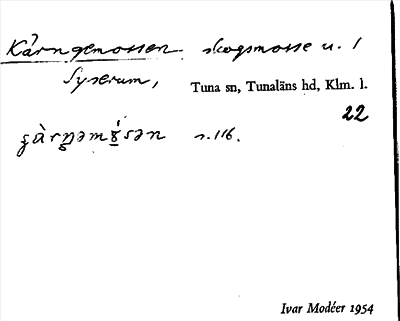 Kärngemossen skogsmosse u. 1
Syserum,
Tuna sn, Tunaläns hd, Klm. l.
22
s. 116.
Ivar Modéer 1954